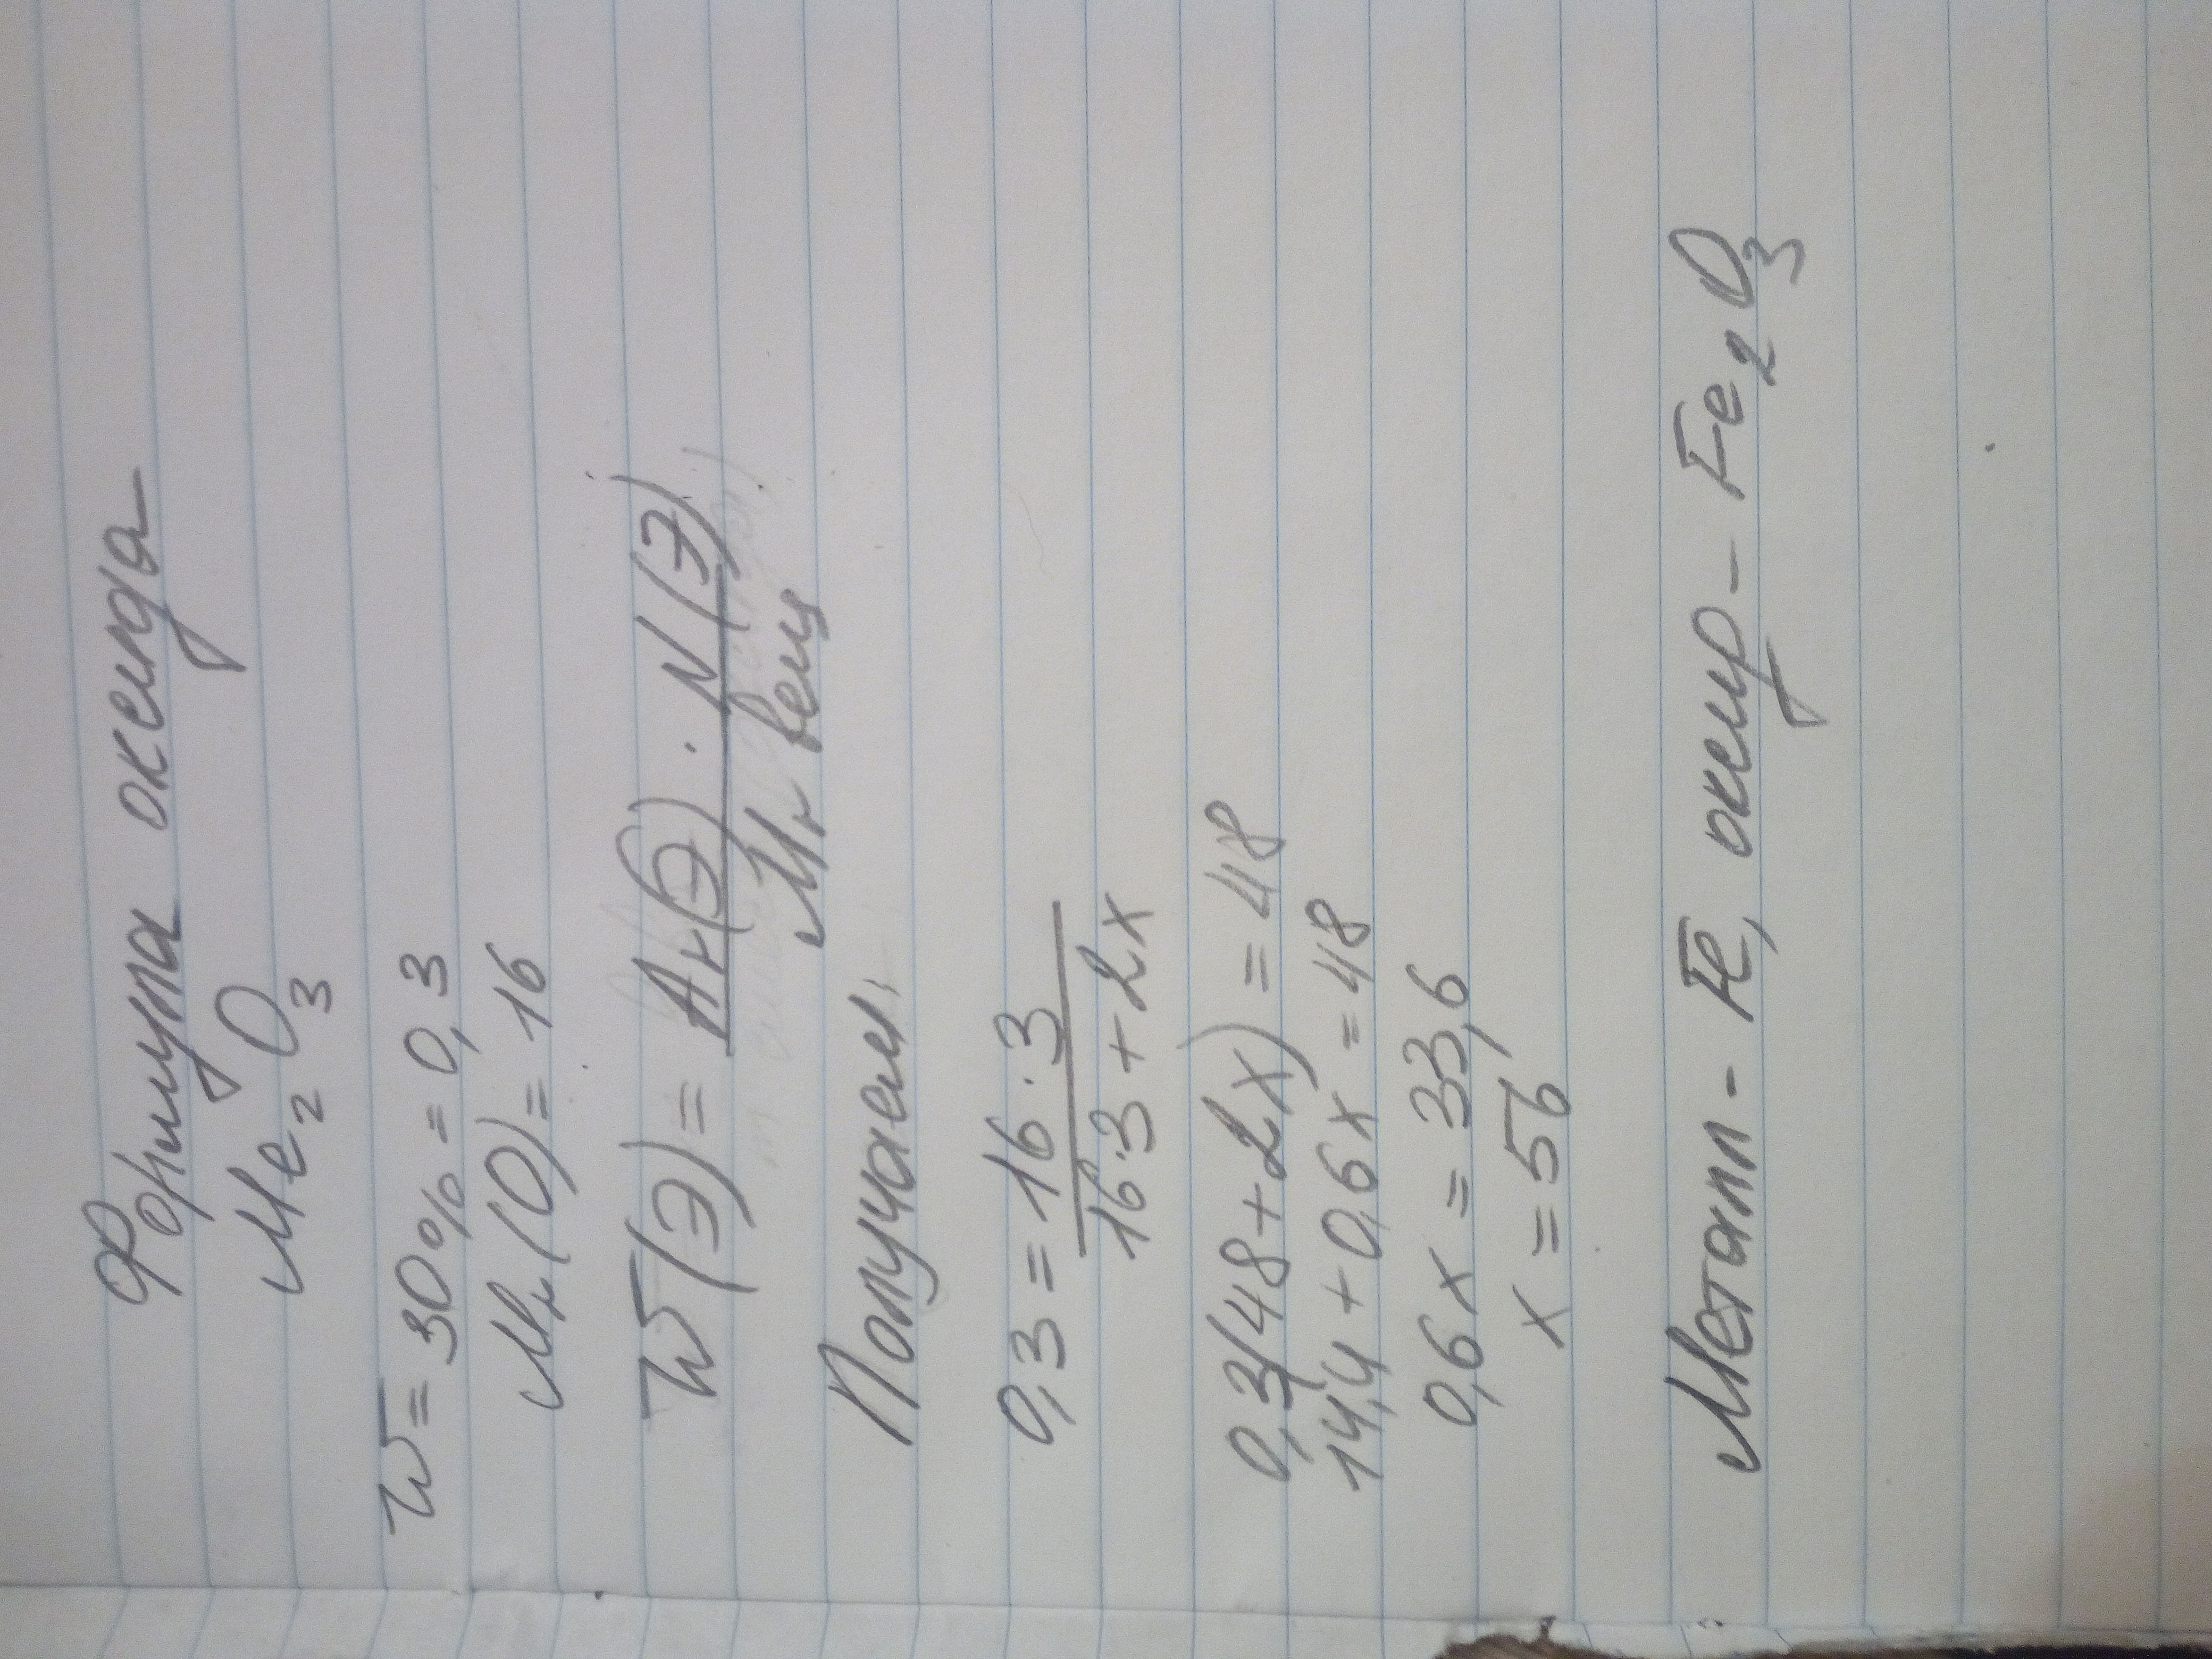 Формула оксида
Me2O3
W = 30% = 0,3
Mr(O) = 16
W(Э) = Ar(Э) · N(Э)
Mr вещ
Получаем
0,3 = 16·3
16·3 + 2x
0,3(48+2x) = 48
14,4 + 0,6x = 48
0,6x = 33,6
x = 56
Металл - Fe, оксид - Fe2O3